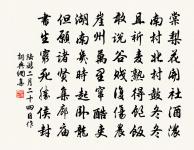 棠梨花開社酒濃
南村北村鼓冬冬
且祈麥熟得飽飯
敢說谷賤復傷農
崖州萬里竄酷吏
湖南幾時起臥龍
但願諸賢集廊廟
書生窮死勝侯封
陸游二月二十四日作
詞典網集